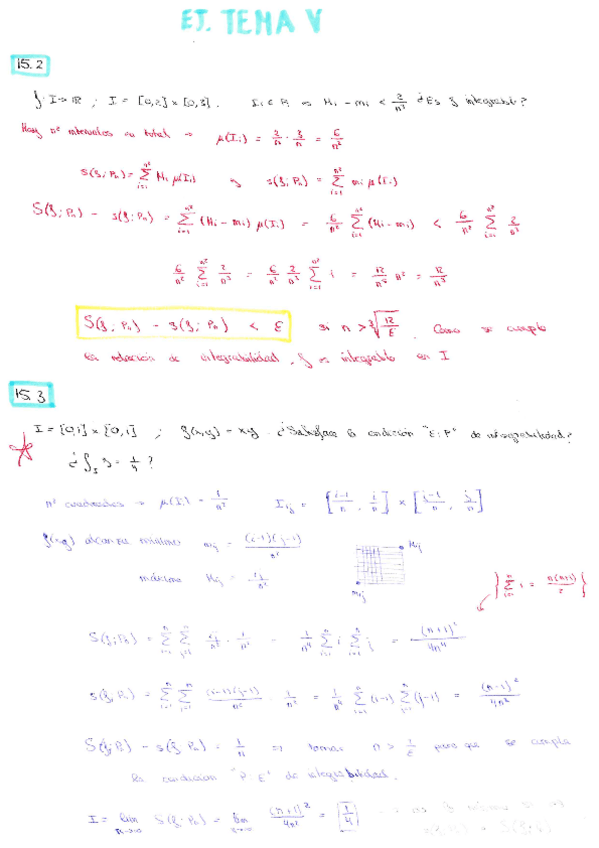 EJ. TEMA V
15.2
f: I → ℝ ; I = [0,2] × [0,3]. I_i ∈ P_n ⇒ M_i - m_i < 2/n³ ¿Es f integrable?
Hay n² intervalos en total → μ(I_i) = 2/n · 3/n = 6/n²
S(f; P_n) = Σ_{i=1}^{n²} M_i μ(I_i) y s(f; P_n) = Σ_{i=1}^{n²} m_i μ(I_i)
S(f; P_n) - s(f; P_n) = Σ_{i=1}^{n²} (M_i - m_i) μ(I_i) = 6/n² Σ_{i=1}^{n²} (M_i - m_i) < 6/n² Σ_{i=1}^{n²} 2/n³
6/n² Σ_{i=1}^{n²} 2/n³ = 6/n² 2/n³ Σ_{i=1}^{n²} 1 = 12/n⁵ n² = 12/n³
S(f; P_n) - s(f; P_n) < ε si n > ∛(12/ε). Como se cumple
la relación de integrabilidad, f es integrable en I
15.3
I = [0,1] × [0,1] ; f(x,y) = xy. ¿Satisface la condición "ε-P" de integrabilidad?
¿∫_I f = 1/4 ?
n² cuadrados → μ(I_i) = 1/n² I_ij = [i-1/n, i/n] × [j-1/n, j/n]
f(x,y) alcanza mínimo m_ij = (i-1)(j-1)/n²
máximo M_ij = ij/n²
M_ij
m_ij
{ Σ_{i=1}^{n} i = n(n+1)/2 }
S(f; P_n) = Σ_{i=1}^{n} Σ_{j=1}^{n} ij/n² · 1/n² = 1/n⁴ Σ_{i=1}^{n} i Σ_{j=1}^{n} j = (n+1)²/4n²
s(f, P_n) = Σ_{i=1}^{n} Σ_{j=1}^{n} (i-1)(j-1)/n² · 1/n² = 1/n⁴ Σ_{i=1}^{n} (i-1) Σ_{j=1}^{n} (j-1) = (n-1)²/4n²
S(f; P_n) - s(f; P_n) = 1/n ⇒ tomar n > 1/ε para que se cumpla
la condición "P-ε" de integrabilidad.
I = lim_{n→∞} S(f; P_n) = lim_{n→∞} (n+1)²/4n² = 1/4